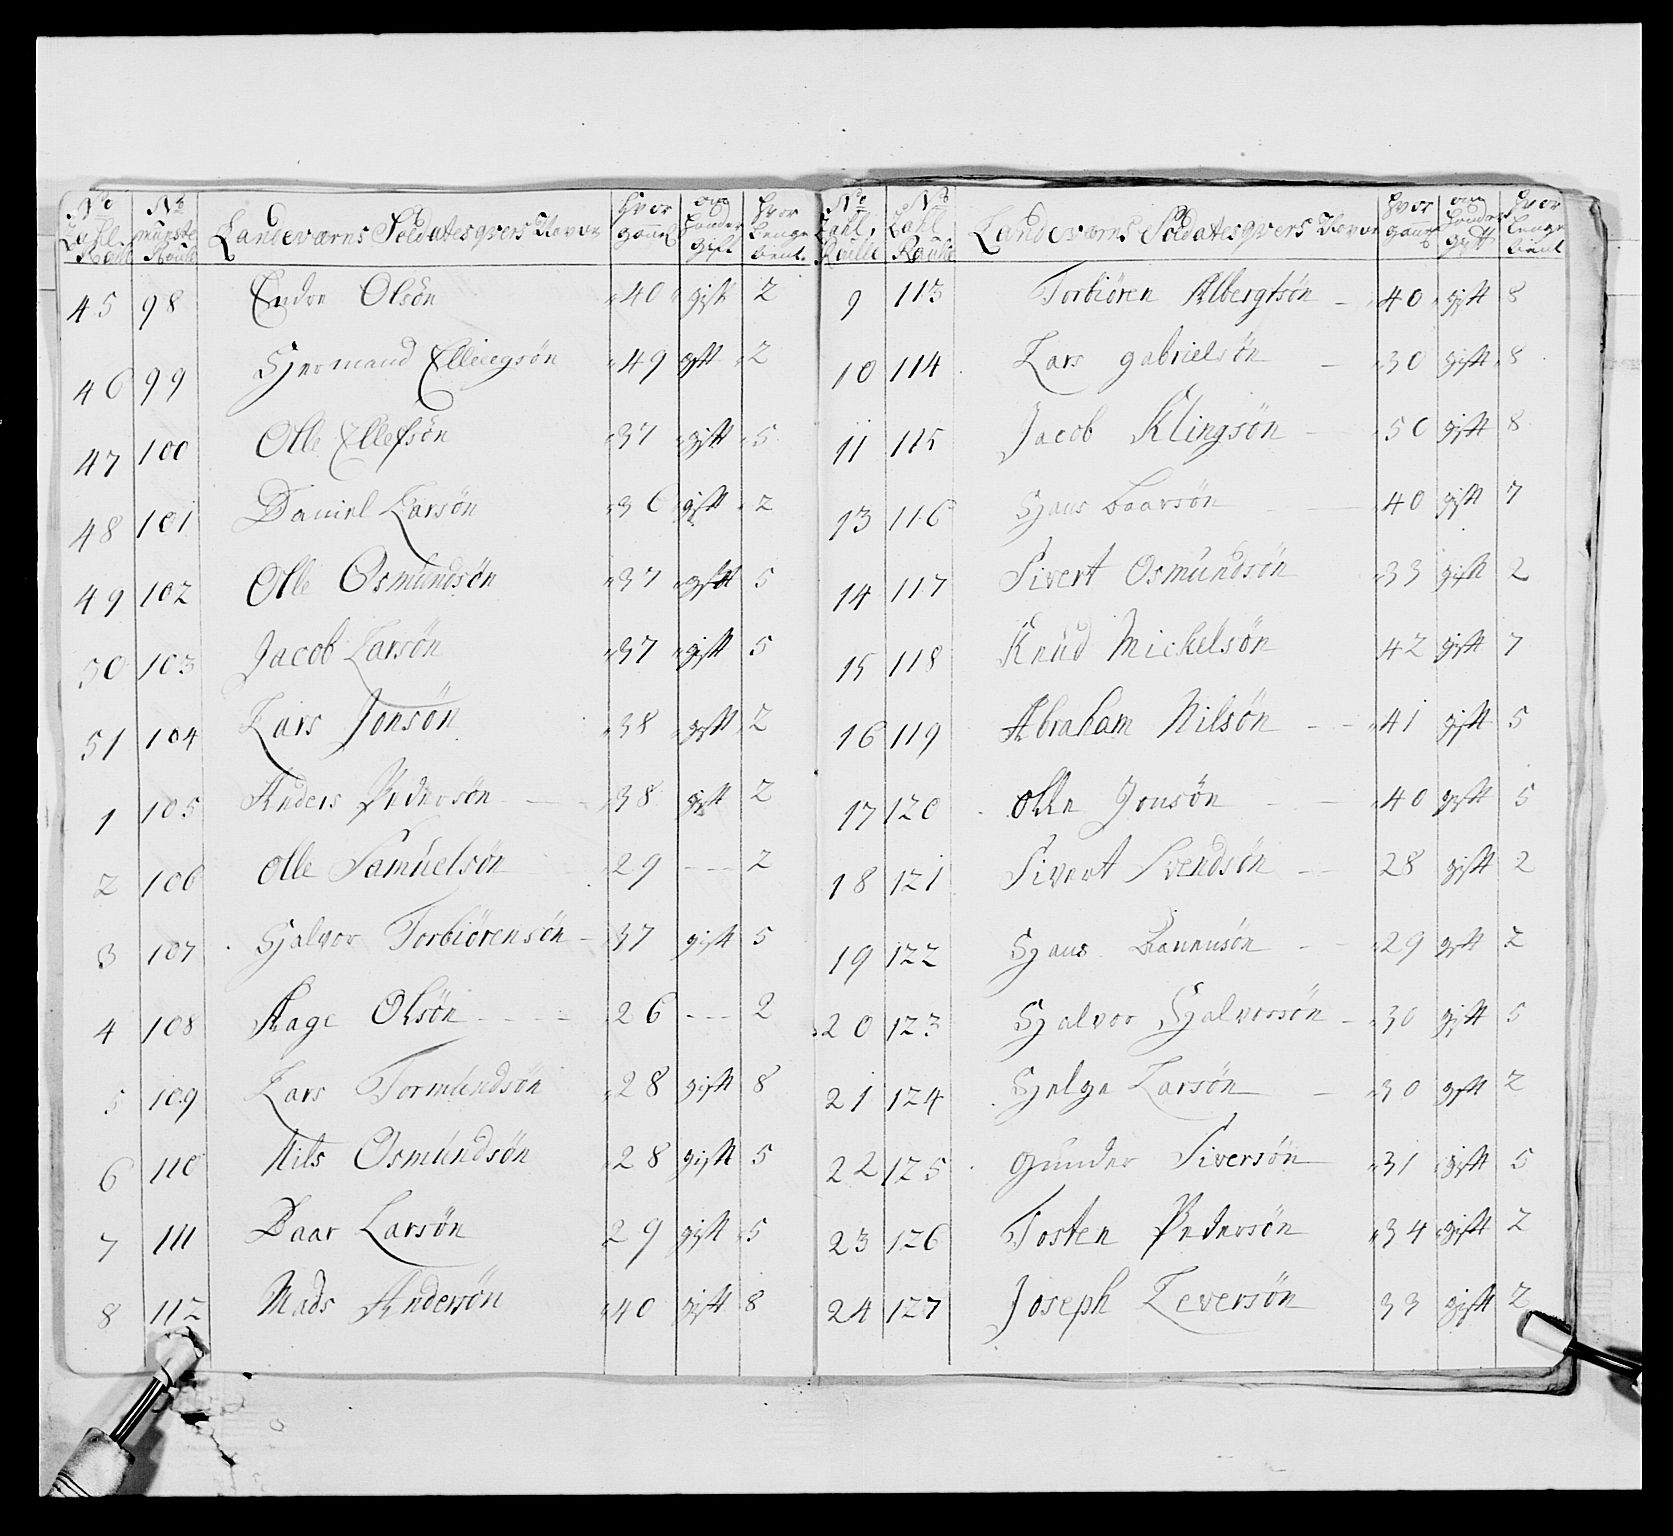 No Zahl Roull | No munste Roull | Landeværns Soldatesqvers Navne | Hvor gaml | om Hander gift | Hvor lenge tient
45 98 Endre Olsön 40 gift 2
46 99 Hermand Ellingsön 49 gift 2
47 100 Olle Ellefsön 37 gift 5
48 101 Daniel Larsön 36 gift 2
49 102 Olle Osmundsön 37 gift 5
50 103 Jacob Larsön 37 gift 5
51 104 Lars Jonsön 38 gift 2
1 105 Anders Pedersön 38 gift 2
2 106 Olle Samuelsön 29 - - - 2
3 107 Halvor Torbiörensön 37 gift 5
4 108 Aage Olsön 26 - - - 2
5 109 Lars Tormundsön 28 gift 8
6 110 Nils Osmundsön 28 gift 5
7 111 Baar Larsön 29 gift 5
8 112 Mads Andersön 40 gift 8
No Zahl Roulle | No Zahl Roulle | Landeværns Soldatesqvers Navne | Hvor gaml | om Hander gift | Hvor lenge tient
9 113 Torbiören Albergtsön 40 gift 8
10 114 Lars gabrielsön 30 gift 8
11 115 Jacob Klingsön 50 gift 8
13 116 Hans Baarsön 40 gift 7
14 117 Sivert Osmundsön 33 gift 2
15 118 Knud Mickelsön 42 gift 7
16 119 Abraham Nilsön 41 gift 5
17 120 Olle Jonsön 40 gift 5
18 121 Sivert Svendsön 28 gift 2
19 122 Hans 29 gift 2
20 123 Halvor Halvorsön 30 gift 5
21 124 Helge Larsön 30 gift 2
22 125 gunder Siversön 31 gift 5
23 126 Tosten Pedersön 34 gift 2
24 127 Joseph Zeversön 33 gift 2